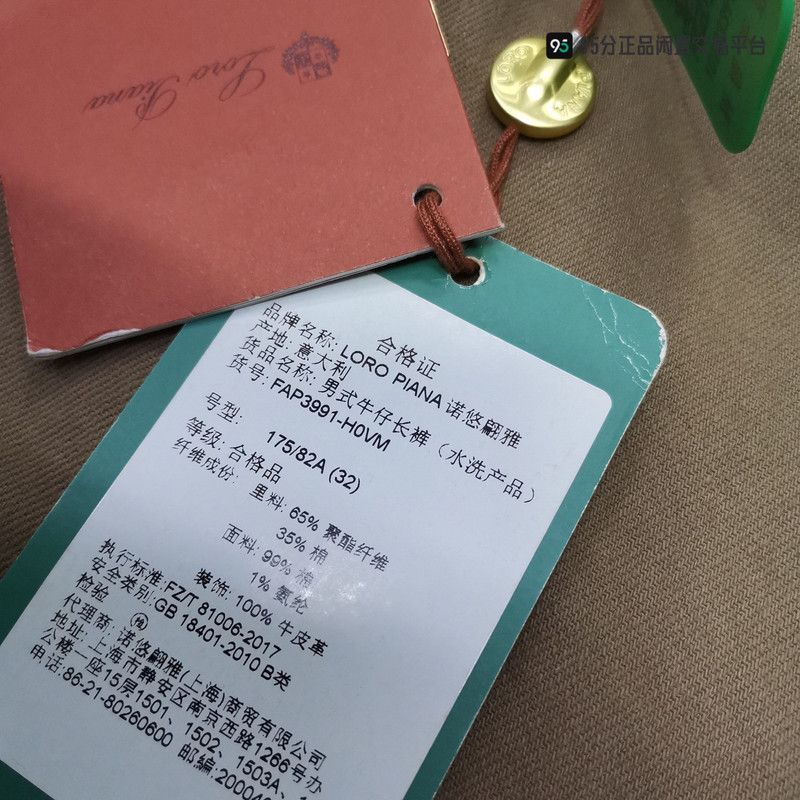 95分正品闲置交易平台
LORO
PIANA
Loro Piana
合格证
品牌名称: LORO PIANA 诺悠翩雅
产地: 意大利
货品名称: 男式牛仔长裤（水洗产品）
货号: FAP3991-H0VM
号型: 175/82A (32)
等级: 合格品
纤维成份: 里料: 65% 聚酯纤维
35% 棉
面料: 99% 棉
1% 氨纶
装饰: 100% 牛皮革
执行标准:FZ/T 81006-2017
安全类别:GB 18401-2010 B类
检验
代理商: 诺悠翩雅(上海)商贸有限公司
地址: 上海市静安区南京西路1266号办
公楼一座15层1501、1502、1503A、
电话:86-21-80260600 邮编:20004